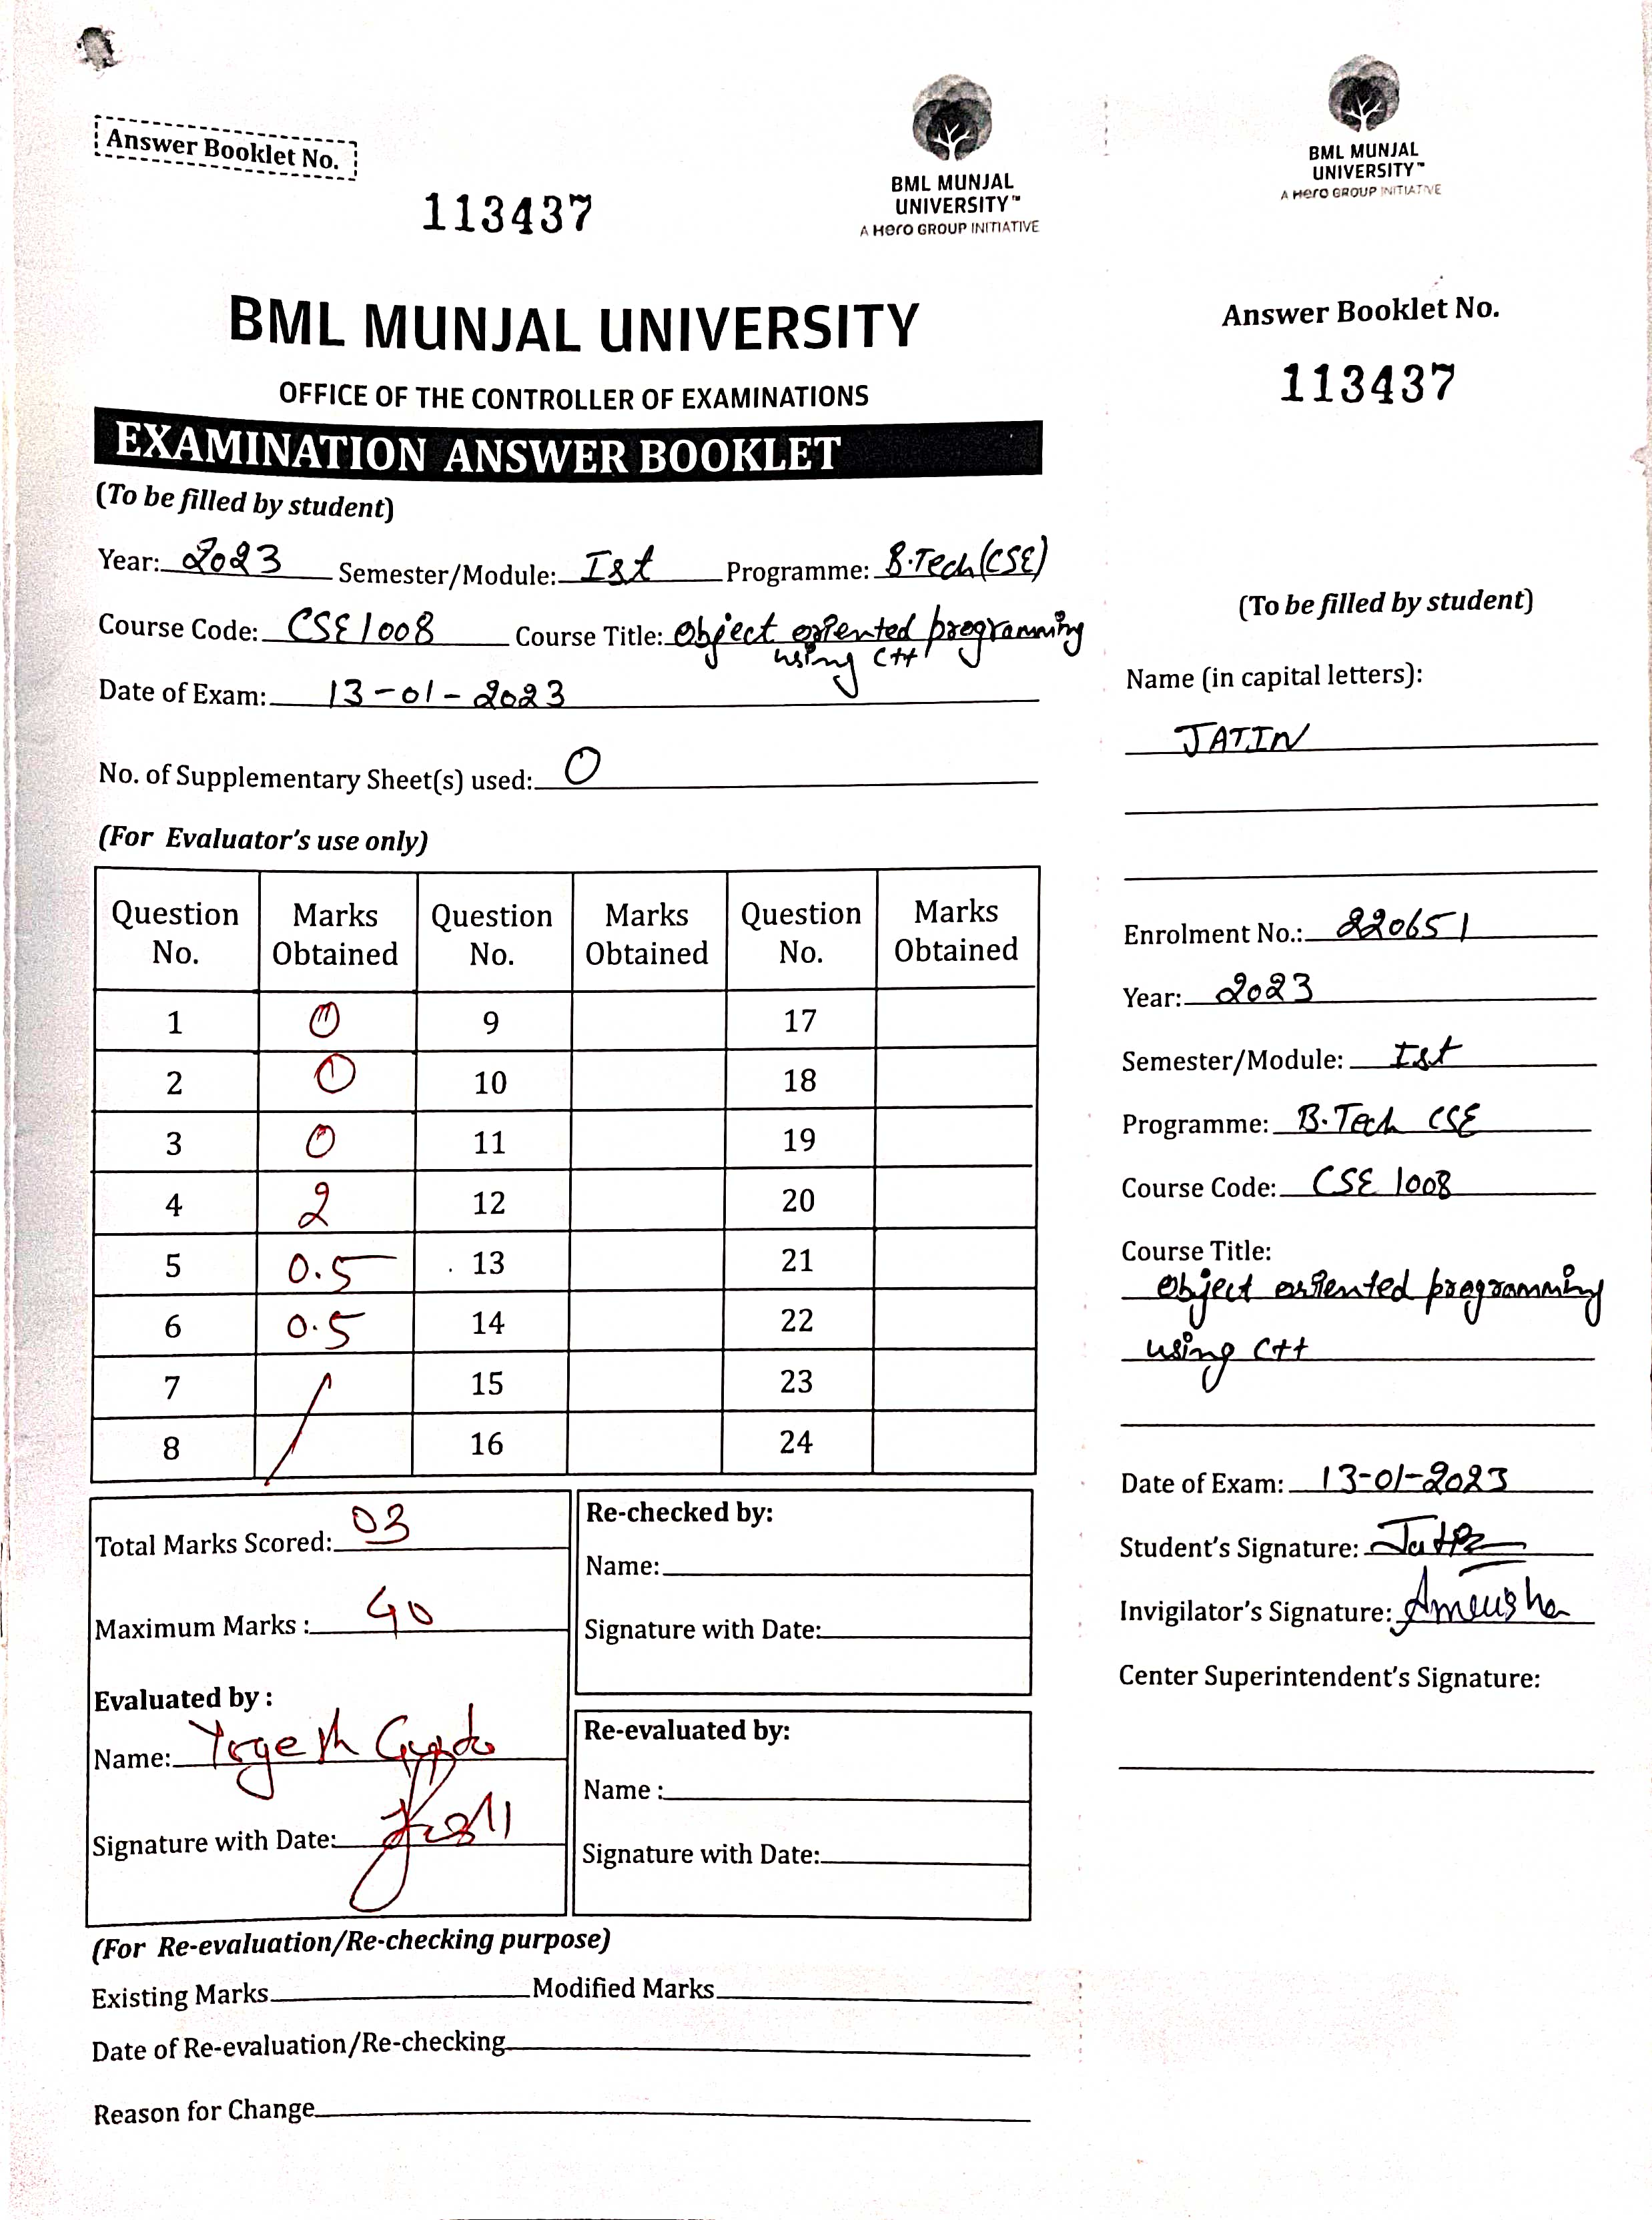 Answer Booklet No.
113437
BML MUNJAL
UNIVERSITY™
A Hero GROUP INITIATIVE
BML MUNJAL UNIVERSITY
OFFICE OF THE CONTROLLER OF EXAMINATIONS
EXAMINATION ANSWER BOOKLET
(To be filled by student)
Year: 2023 Semester/Module: Ist Programme: B.Tech (CSE)
Course Code: CSE1008 Course Title: Object oriented programming
using C++
Date of Exam: 13-01-2023
No. of Supplementary Sheet(s) used: 0
(For Evaluator's use only)
Question No. Marks Obtained Question No. Marks Obtained Question No. Marks Obtained
1 0 9 17
2 0 10 18
3 0 11 19
4 2 12 20
5 0.5 13 21
6 0.5 14 22
7 15 23
8 16 24
Total Marks Scored: 03
Maximum Marks : 40
Evaluated by :
Name: Yogesh Gupta
Signature with Date:
Re-checked by:
Name:
Signature with Date:
Re-evaluated by:
Name :
Signature with Date:
(For Re-evaluation/Re-checking purpose)
Existing Marks Modified Marks
Date of Re-evaluation/Re-checking
Reason for Change
BML MUNJAL
UNIVERSITY™
A Hero GROUP INITIATIVE
Answer Booklet No.
113437
(To be filled by student)
Name (in capital letters):
JATIN
Enrolment No.: 220651
Year: 2023
Semester/Module: Ist
Programme: B.Tech CSE
Course Code: CSE 1008
Course Title:
Object oriented programming
using C++
Date of Exam: 13-01-2023
Student's Signature: Jatin
Invigilator's Signature:
Center Superintendent's Signature: